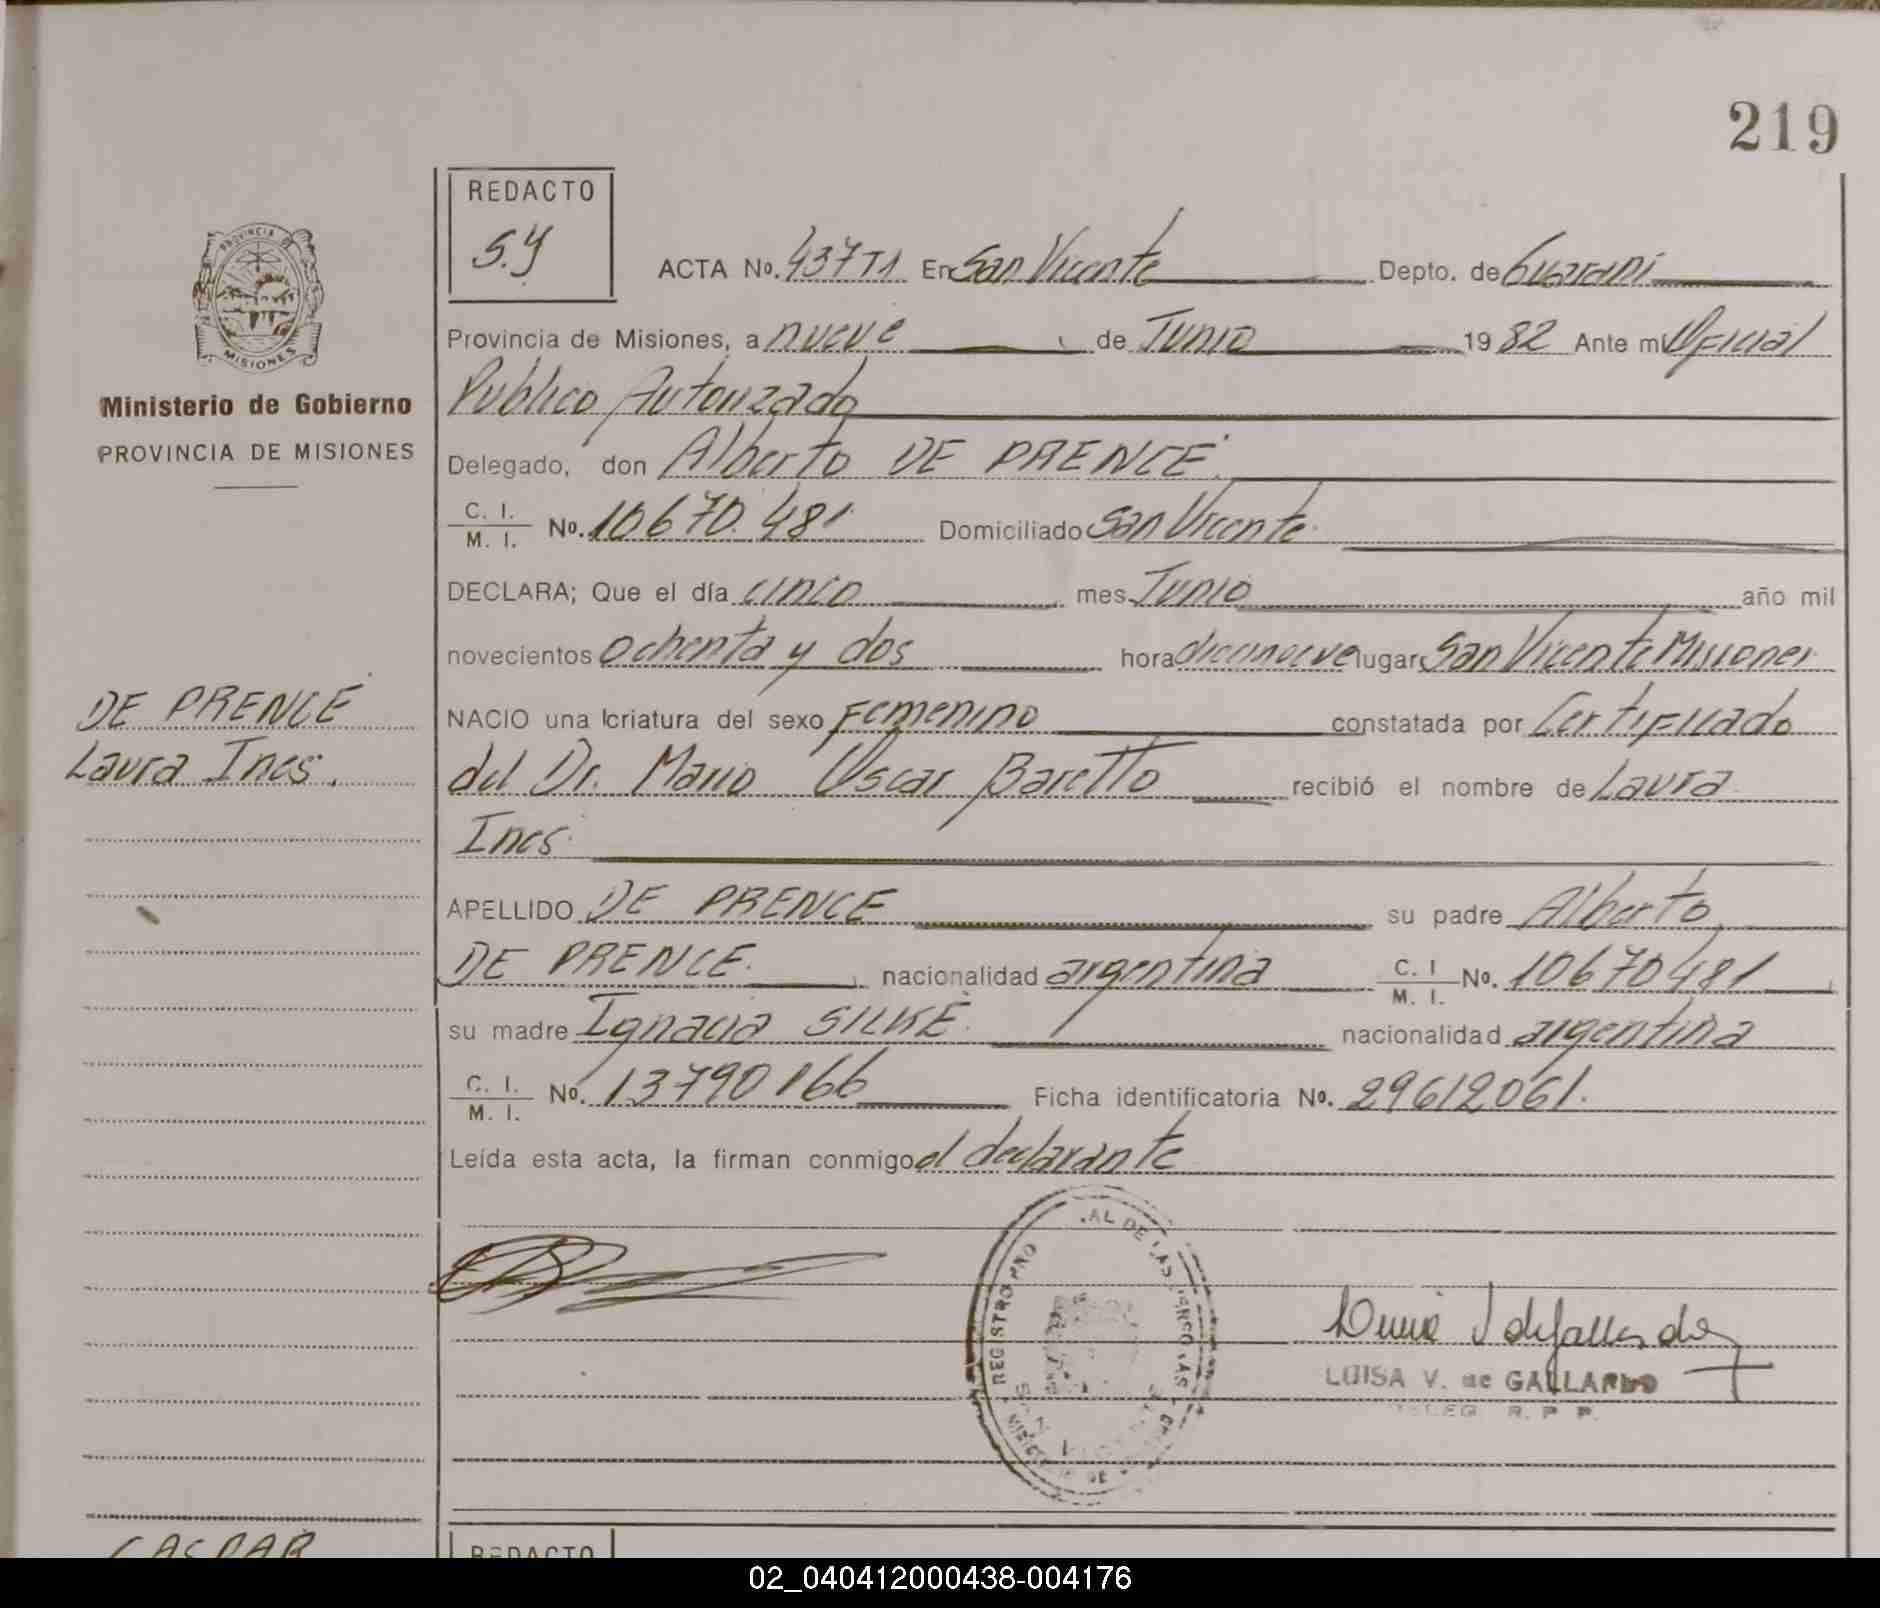 219
REDACTO
S.Y
ACTA No. 437 T1 En San Vicente Depto. de Guarani
PROVINCIA DE MISIONES
Provincia de Misiones, a nueve de Junio 1982 Ante mi Oficial
Publico Autorizado
Ministerio de Gobierno
PROVINCIA DE MISIONES
Delegado, don Alberto DE PRENCE.
C. I. / M. I. No. 10670.481 Domiciliado San Vicente.
DECLARA; Que el día cinco mes Junio año mil
novecientos ochenta y dos hora diecinueve lugar San Vicente Misiones
DE PRENCE
Laura Ines.
NACIO una criatura del sexo Femenino constatada por Certificado
del Dr. Mario Oscar Baretto recibió el nombre de Laura
Ines.
APELLIDO DE PRENCE su padre Alberto
DE PRENCE. nacionalidad argentina C. I / M. I. No. 10670481
su madre Ignacia SILKE. nacionalidad argentina
C. I. / M. I. No. 13790166 Ficha identificatoria No. 29612061.
Leída esta acta, la firman conmigo el declarante
LUISA V. de GALLARDO
DELEG. R. P. P.
REGISTRO PRO AL DE LAS PERSONAS
CASPAR
REDACTO
02_040412000438-004176